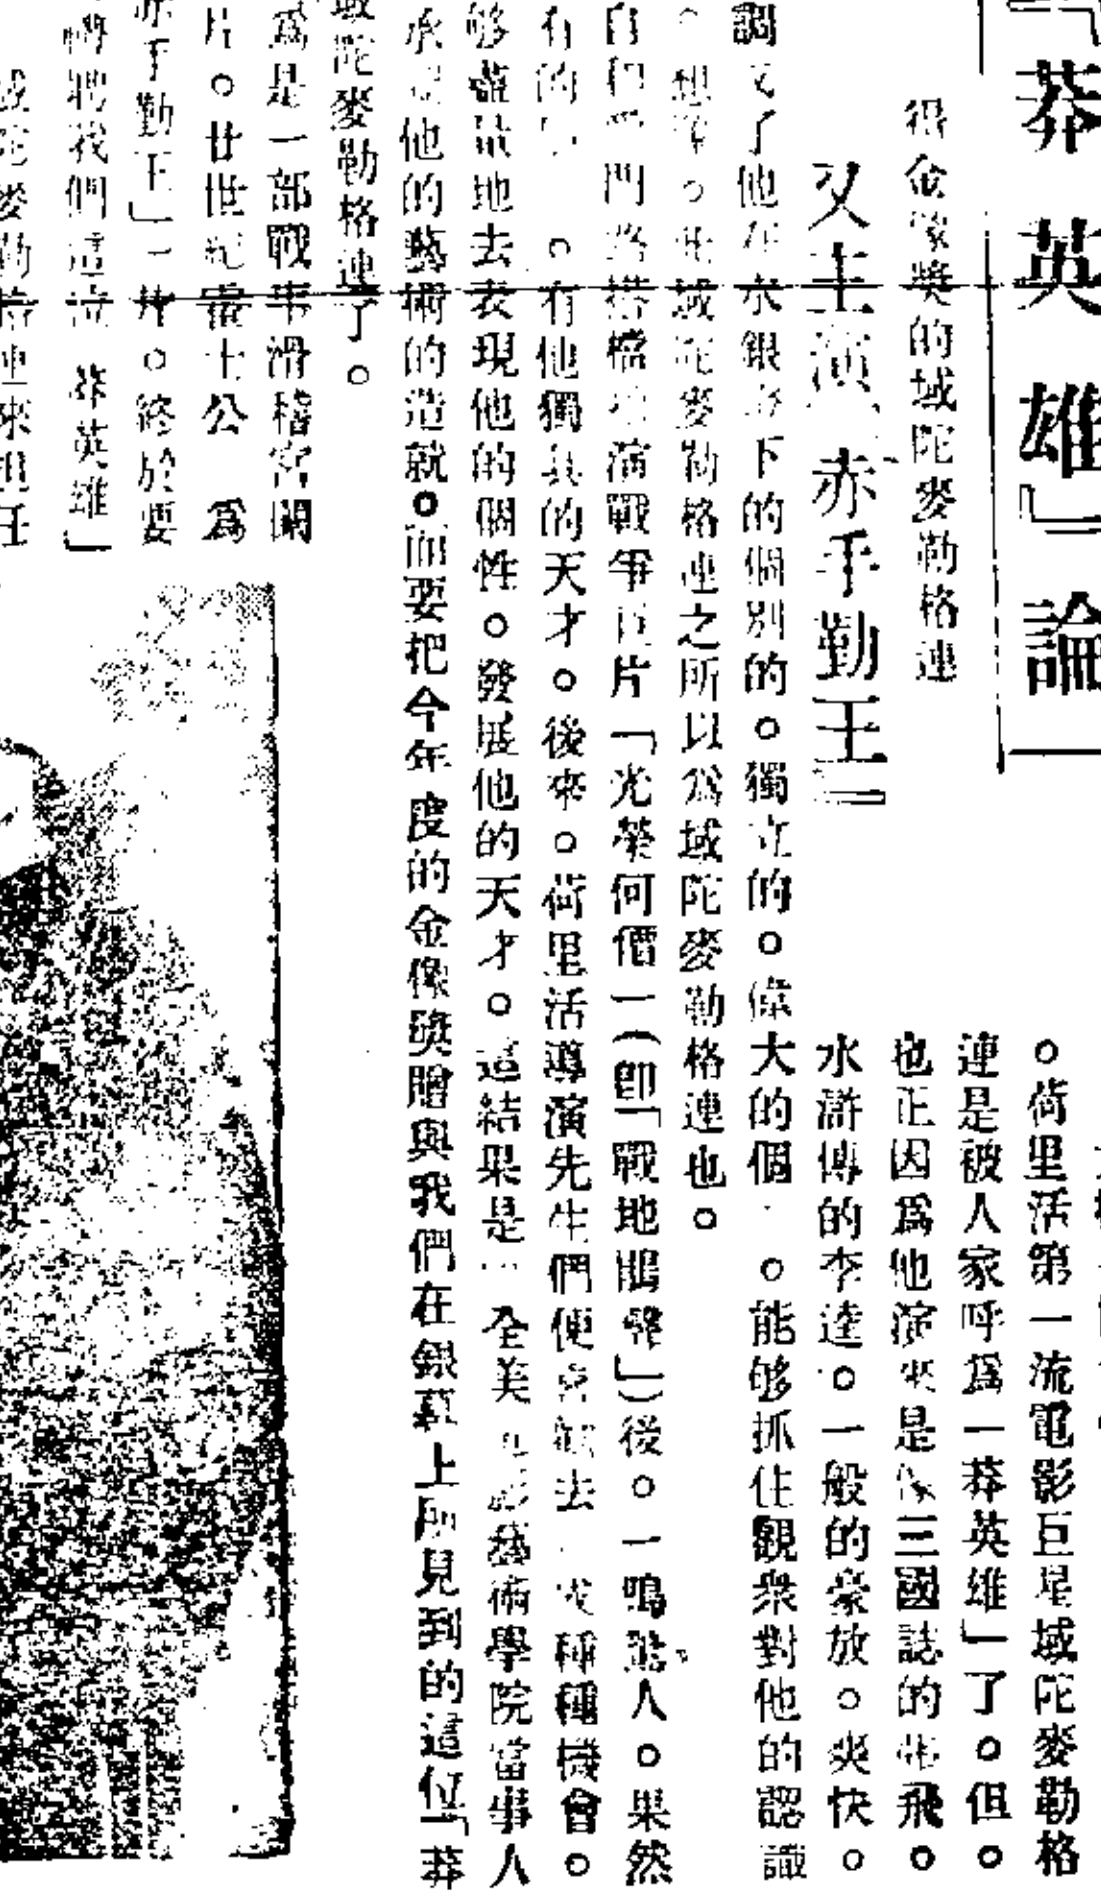 「莽英雄」論
得金像獎的域陀麥勒格連
又主演「赤手勤王」
。荷里活第一流電影巨星域陀麥勒格
連是被人家呼爲「莽英雄」了。但。
也正因爲他演來是像三國誌的張飛。
水滸傳的李逵。一般的豪放。爽快。
調 了他在水銀 下的個別的。獨立的。偉大的個 。能够抓住觀衆對他的認識
。想 。 域陀麥勒格連之所以爲域陀麥勒格連也。
自和 門路搭檔 演戰爭巨片「光榮何價」(即「戰地鵑聲」)後。一鳴驚人。果然
有的 。有他獨具的天才。後來。荷里活導演先生們便 去 種種機會。
够盡量地去表現他的個性。發展他的天才。這結果是 全美 藝術學院當事人
承認他的藝術的造就。而要把今年度的金像獎贈與我們在銀幕上所見到的這位「莽
域陀麥勒格連了。
爲是一部戰事滑稽宮闈
片。廿世紀霍士公 爲
赤手勤王」一片。終於要
轉聘我們這位 莽英雄」
域陀麥勒格連來担任